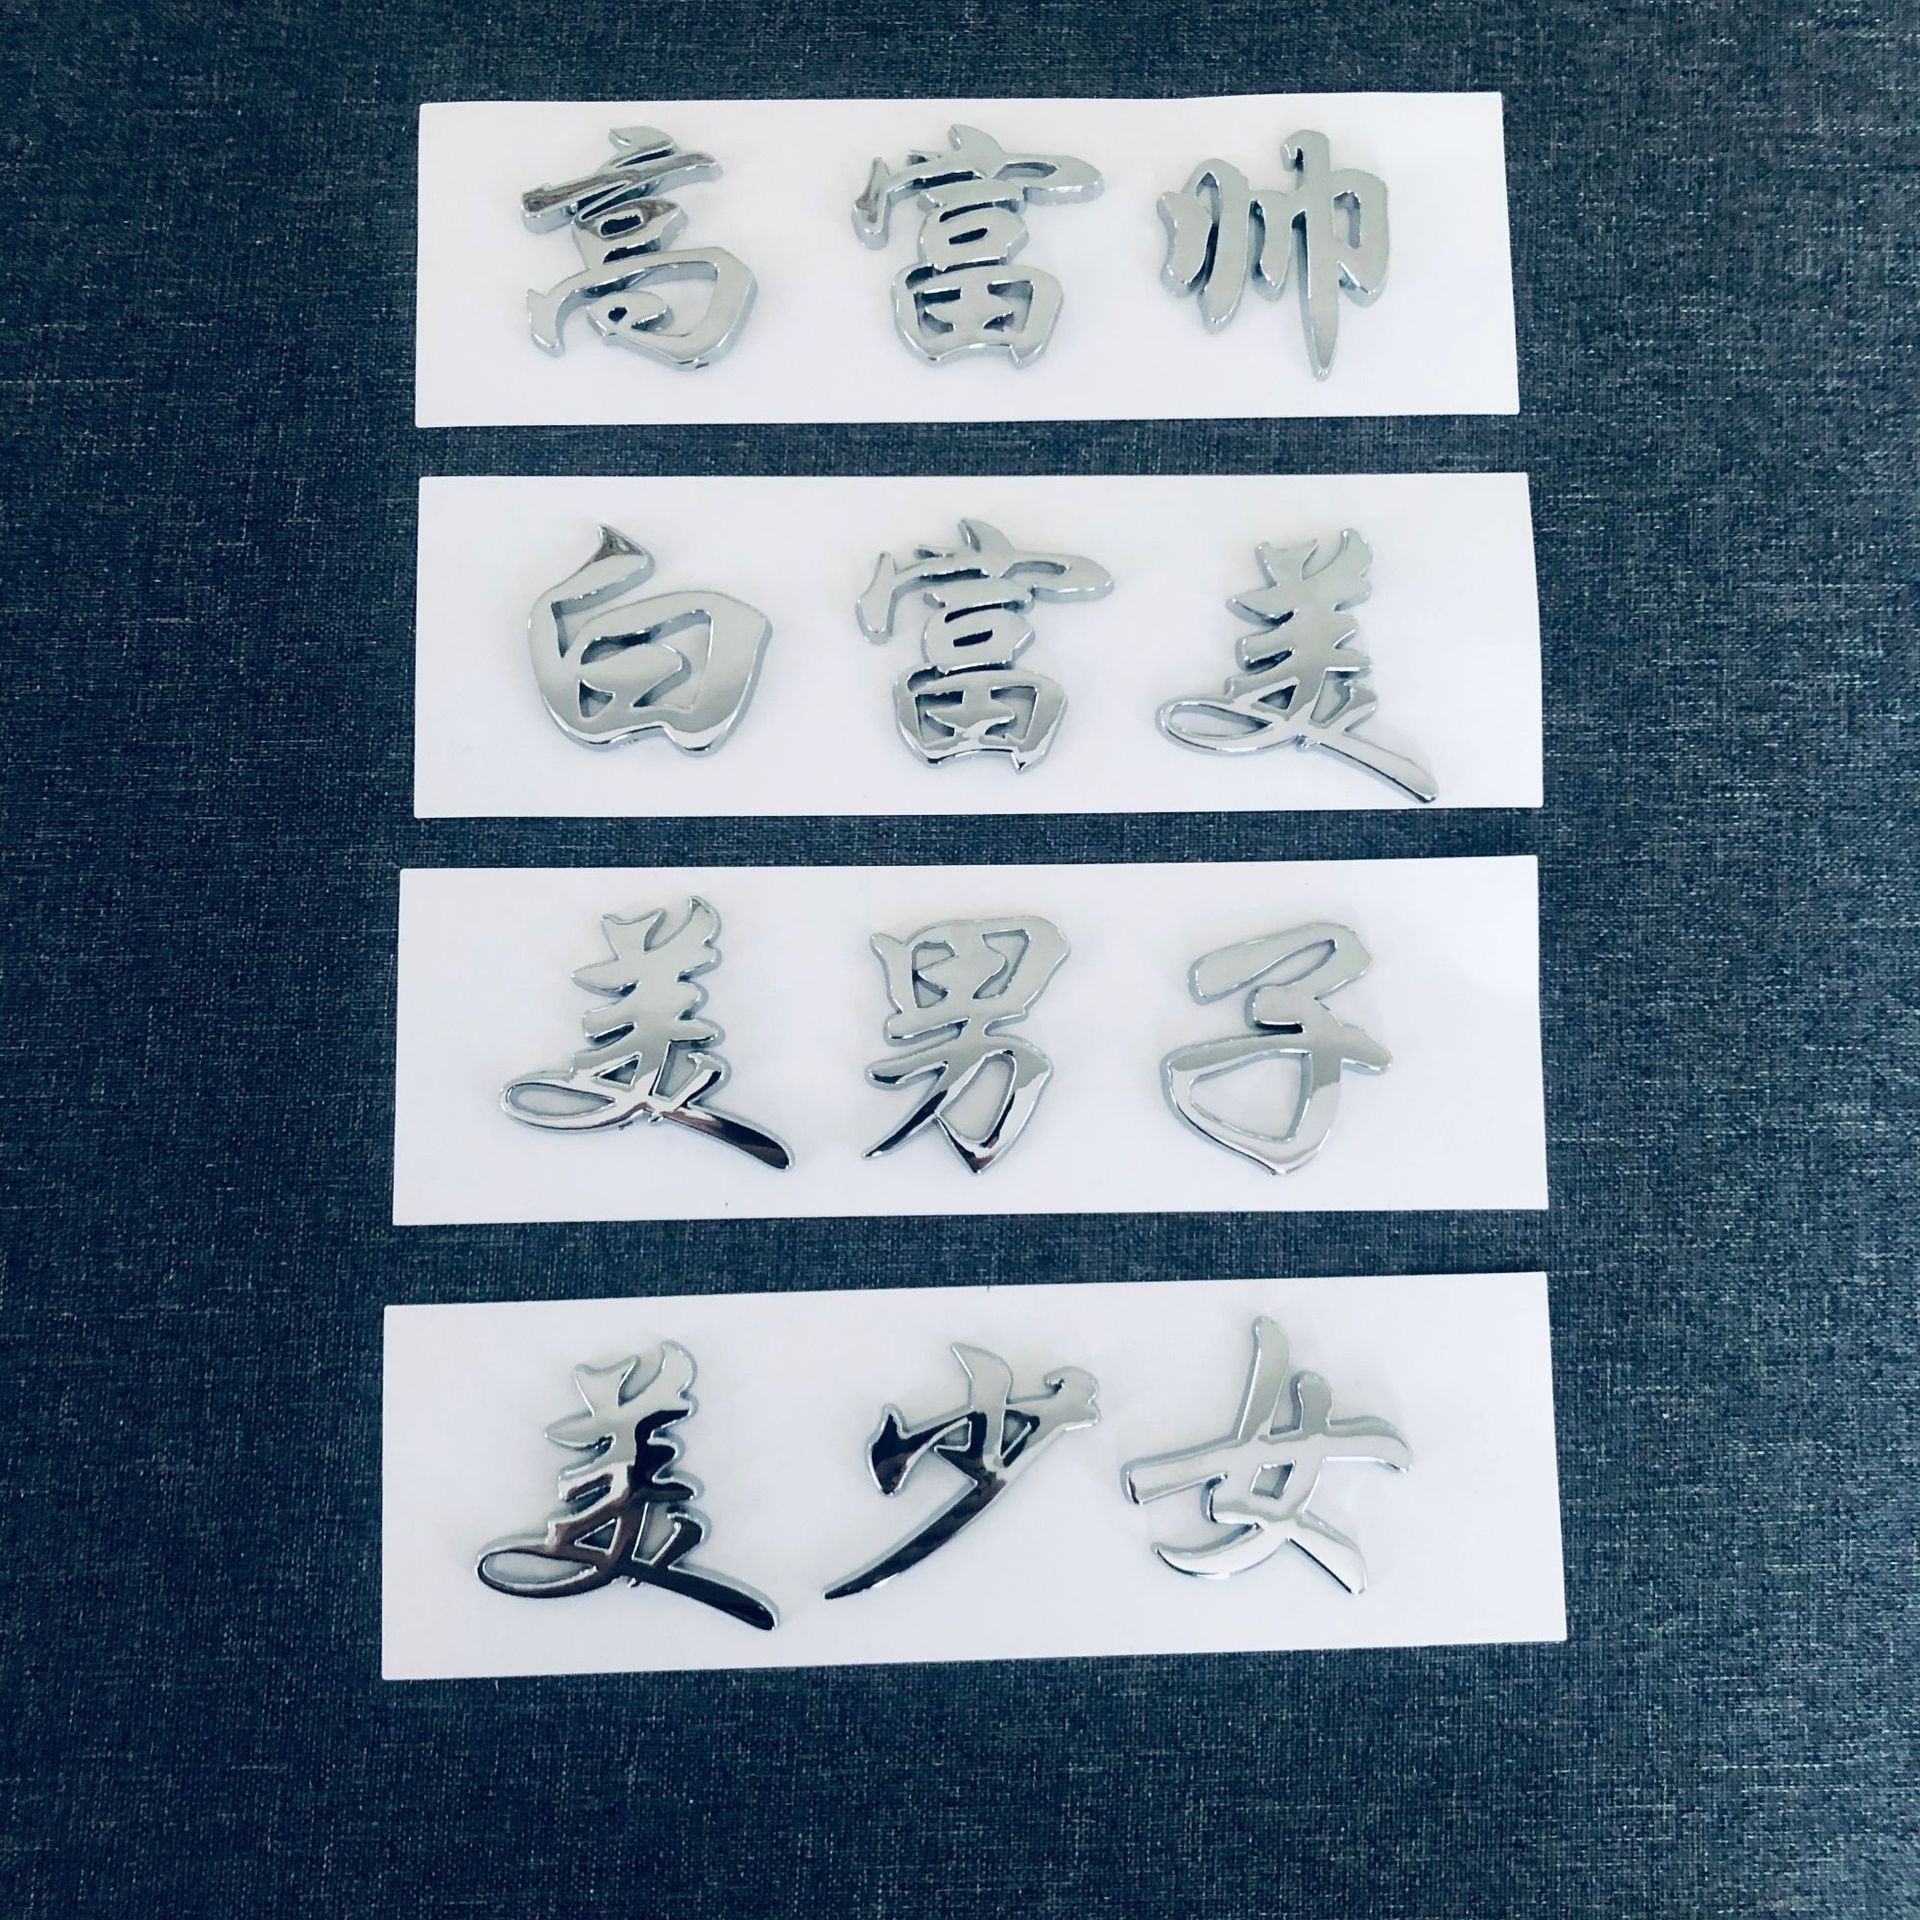 高富帅
白富美
美男子
美少女